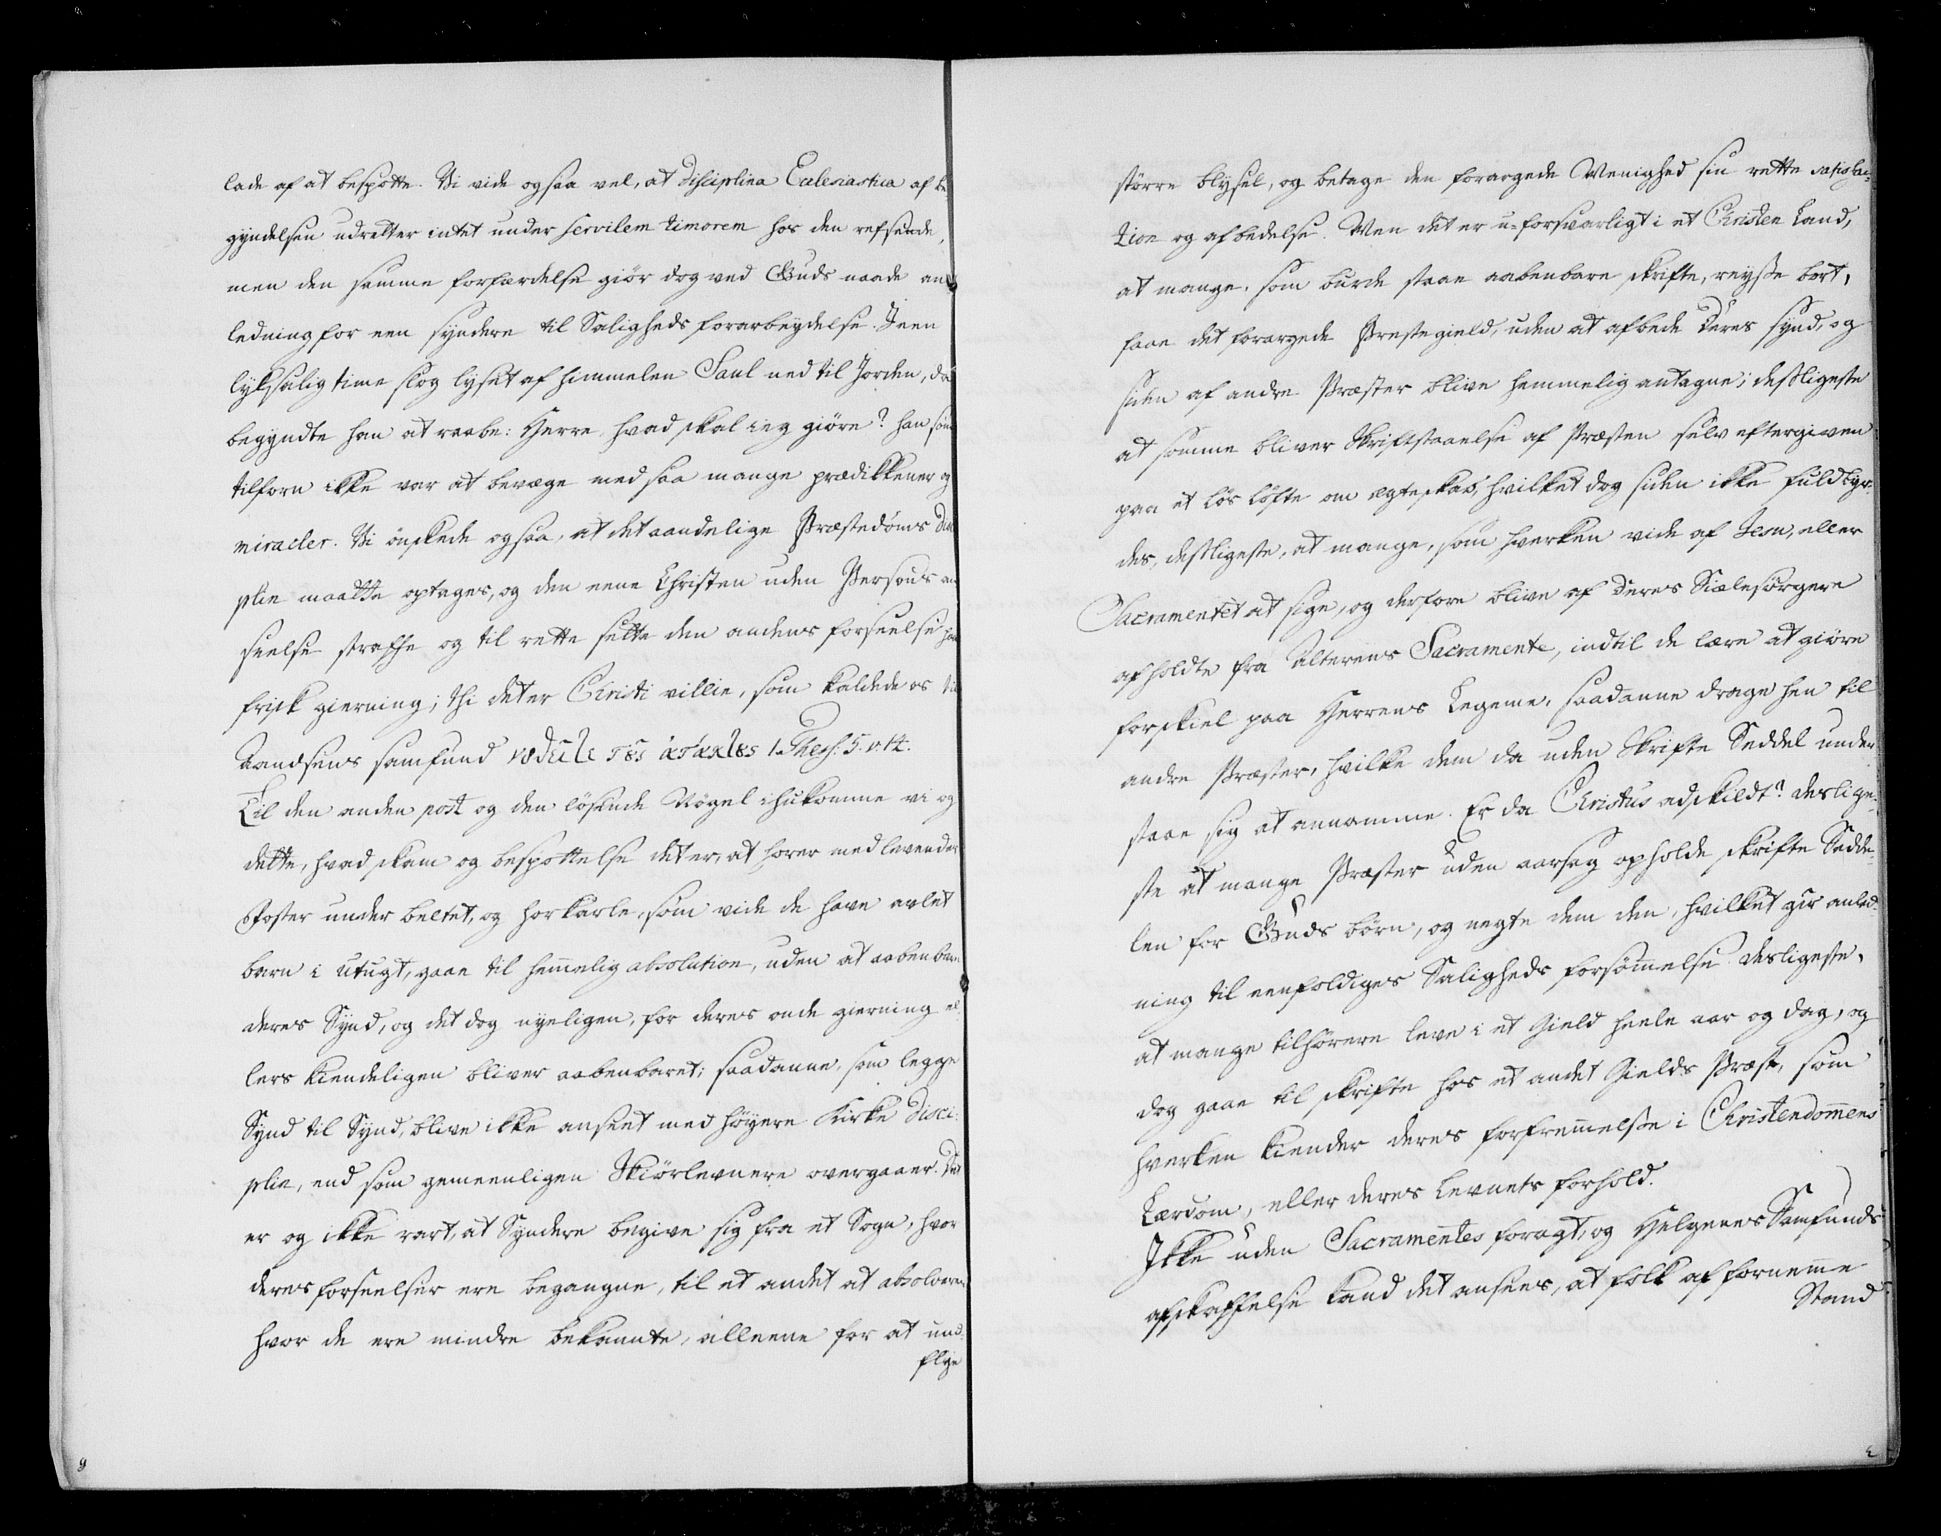 lade af at bespotte. Vi vide ogsaa vel, at Disciplina Ecclesiastica af be
gyndelsen udretter intet under servilem timorem hos den refsende,
men den samme forfærdelse giör dog ved Guds naade an
ledning for een syndere til Saligheds forarbeydelse. I een
lyksalig time slog lyset af himmelen Saul ned til Jorden, da
begyndte han at raabe: Herre hvad skal ieg giöre? han som
tilforn ikke var at bevæge med saa mange prædikkener og
miracler. Vi önskede ogsaa, at det aandelige Præstedöms Disci
plin maatte optages, og den eene Christen uden Persons an
seelse straffe og til rette sette den andens forseelse
frisk gierning; thi det er Christi villie, som kaldede os til
Aandsens samfund νουθετεῖτε τοὺς ἀτάκτους 1. Thess: 5. v 14.
Til den anden post og den lösende Nögel ihukomme vi og
dette, hvad skam og bespottelse det er, at horer med levendes
Foster under beltet, og horkarle, som vide de have avlet
barn i Utugt, gaae til hemmelig absolution, uden at aabenbare
deres Synd, og det dog nyeligen, for deres onde gierning el
lers kiendeligen bliver aabenbaret; saadanne, som legge
Synd til Synd, blive ikke anseet med höyere Kirke Disci-
plin, end som gemeenligen Skiörlevnere overgaaer. Det
er og ikke rart, at Syndere begive sig fra et Sogn, hvor
deres forseelser ere begangne, til et andet at absolveres
hvor de ere mindre bekannte, alleene for at und-
flye
större blysel, og betage den forargede Menighed sin rette satisfac-
tion og afbedelse. Men det er u-forsvarligt i et Christen Land,
at mange, som burde staae aabenbare skrifte, reyse bort,
faae det forargede Prestegield, uden at afbede deres synd, og
siden af andre Præster blive hemmelig antagne; desligeste
at somme bliver Skriftstaaelse af Præsten selv eftergiven
paa et lös löfte om ægteskab, hvilket dog siden ikke fuldgiör-
des, desligeste, at mange, som hverken vide af Jesu, eller
Sacramentet at sige, og derfore blive af deres Siælesörgere
afholdte fra Alterens Sacramente, indtil de lære at giöre
forskiel paa Herrens Legeme, saadanne drage hen til
andre Præster, hvilke dem da uden Skrifte Seddel under
staae sig at annamme. Er da Christus adskildt? desligе-
ste at mange Præster uden aarsag opholde skrifte Sedde-
len for Guds börn, og negte dem den, hvilket gir anled-
ning til eenfoldiges Saligheds forsömelse. desligeste,
at mange tilhörere leve i et Gield heele aar og dag, og
dog gaae til skrifte hos et andet Gields Præst, som
hverken kiender deres forfremelse i Christendommens
Lærdom, eller deres Levnets forhold.
Ikke uden Sacramentes foragt, og Helgenes Samfunds
afskaffelse kand det ansees, at folk af fornemme
Stand